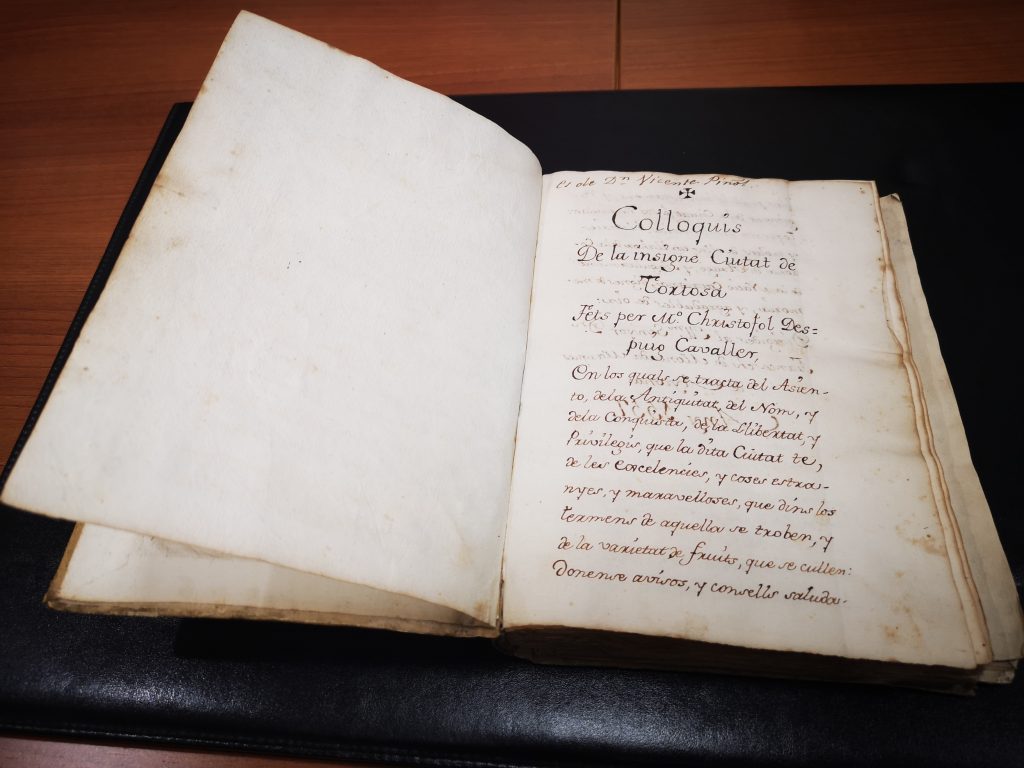 es de Dn Vicente Pinol.
Colloquis
De la insigne Ciutat de
Tortosa
Fets per Mº. Christofol Des=
puig Cavaller,
En los quals se tracta del Asien-
to, de la Antiquitat, del Nom, y
de la Conquista, de la Llibertat, y
Privilegis, que la dita Ciutat te,
de les Excelencies, y coses estra-
nyes, y maravelloses, que dins los
termens de aquella se troben, y
de la varietat de fruits, que se cullen:
Donense avisos, y consells saluda-